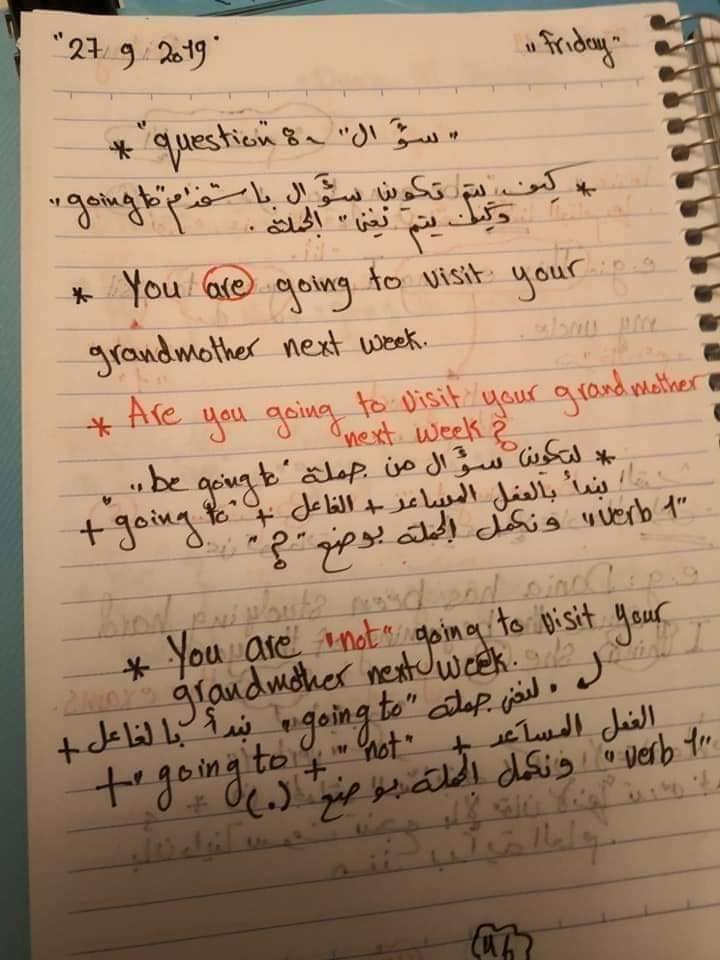 "27 9 2019" "Friday"
* "question" :- "سؤال"
* كيف يتم تكوين سؤال باستخدام "going to"
وكيف يتم نفي" الجملة.
* You are going to visit your
grandmother next week.
* Are you going to visit your grandmother
next week?
* لتكوين سؤال من جملة "be going to"
نبدأ بالفعل المساعد + الفاعل + "going to" +
"verb 1" ونكمل الجملة بوضع "؟"
* You are "not" going to visit your
grandmother next week.
• لنفي جملة "going to" نبدأ بالفاعل +
الفعل المساعد + "not" + "going to" +
"verb 1" ونكمل الجملة بوضع (.)